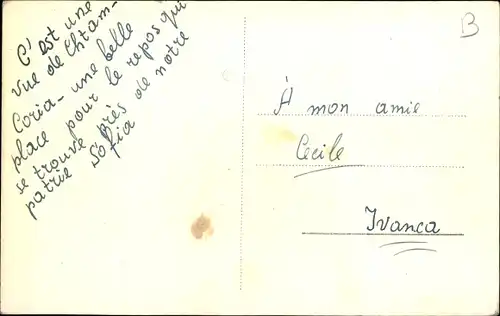 C'est une
vue de Chtam-
Coria - une belle
place pour le repos qui
se trouve près de notre
patrie Sofia
À mon amie
Cecile
Ivanca
B